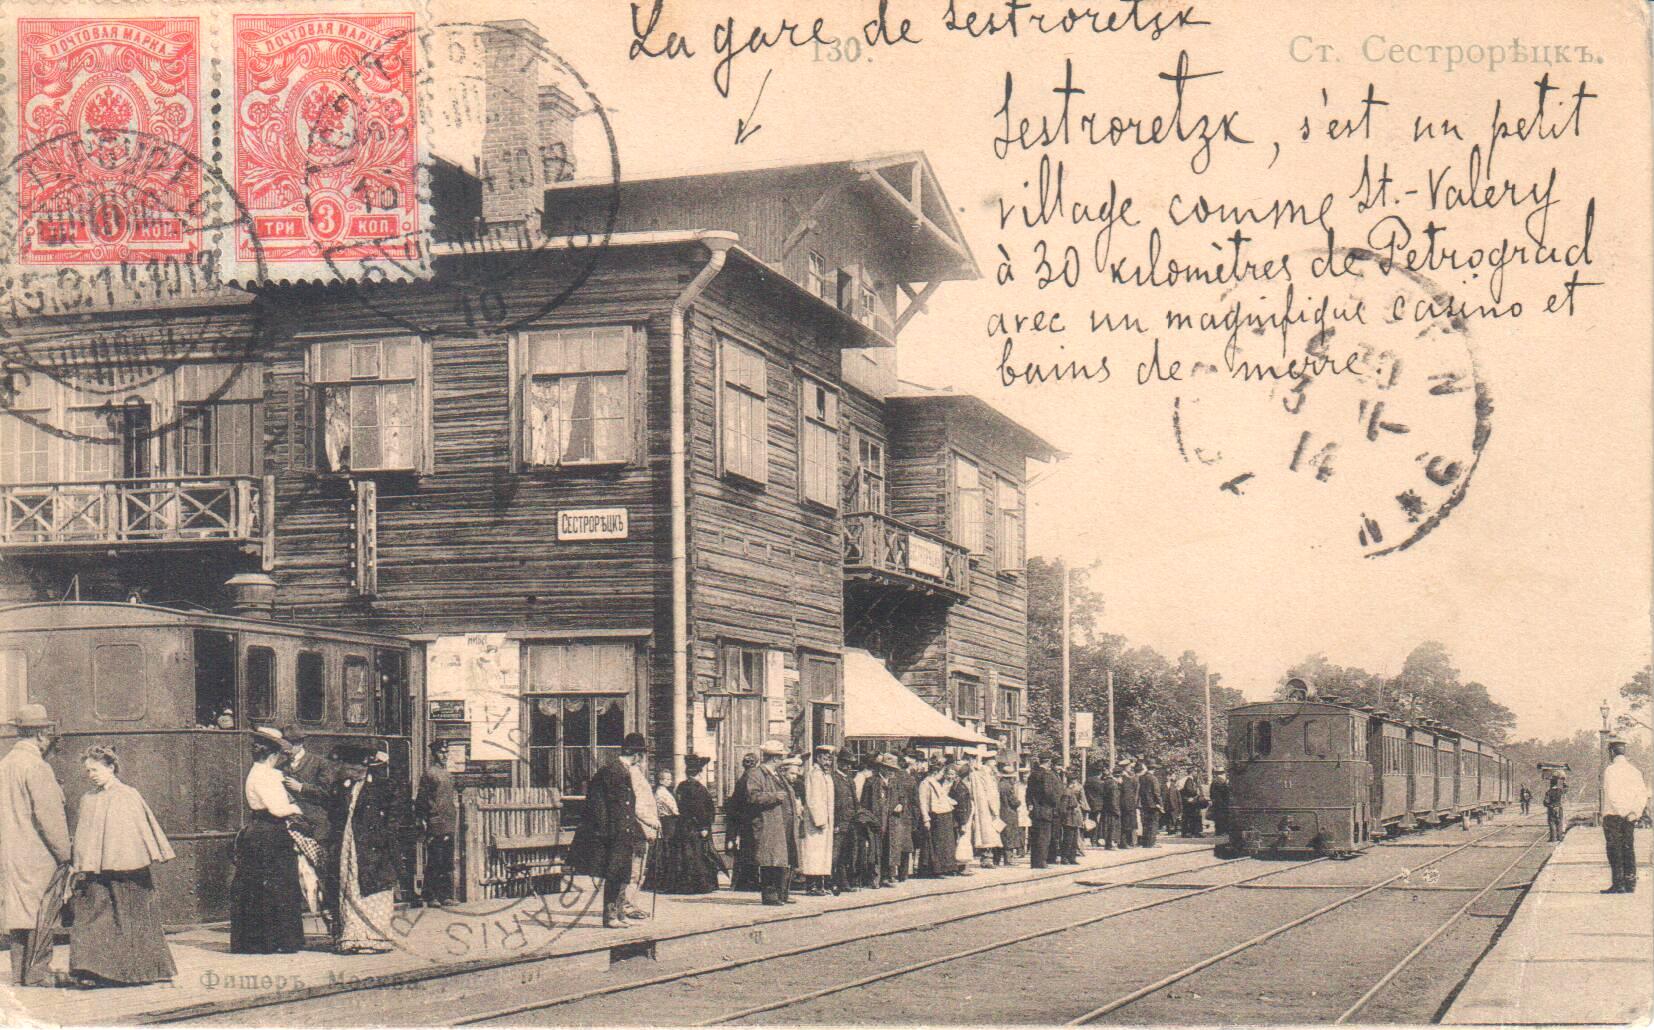 La gare de Sestroretzk
130.
Ст. Сестрорѣцкъ.
Sestroretzk, s'est un petit
village comme St.-Valery
à 30 kilomètres de Petrograd
avec un magnifique casino et
bains de merre.
ПОЧТОВАЯ МАРКА
ПОЧТОВАЯ МАРКА
ТРИ 3 КОП.
ТРИ 3 КОП.
СЕСТРОРѢЦКЪ
PARIS
Фишеръ, Москва.